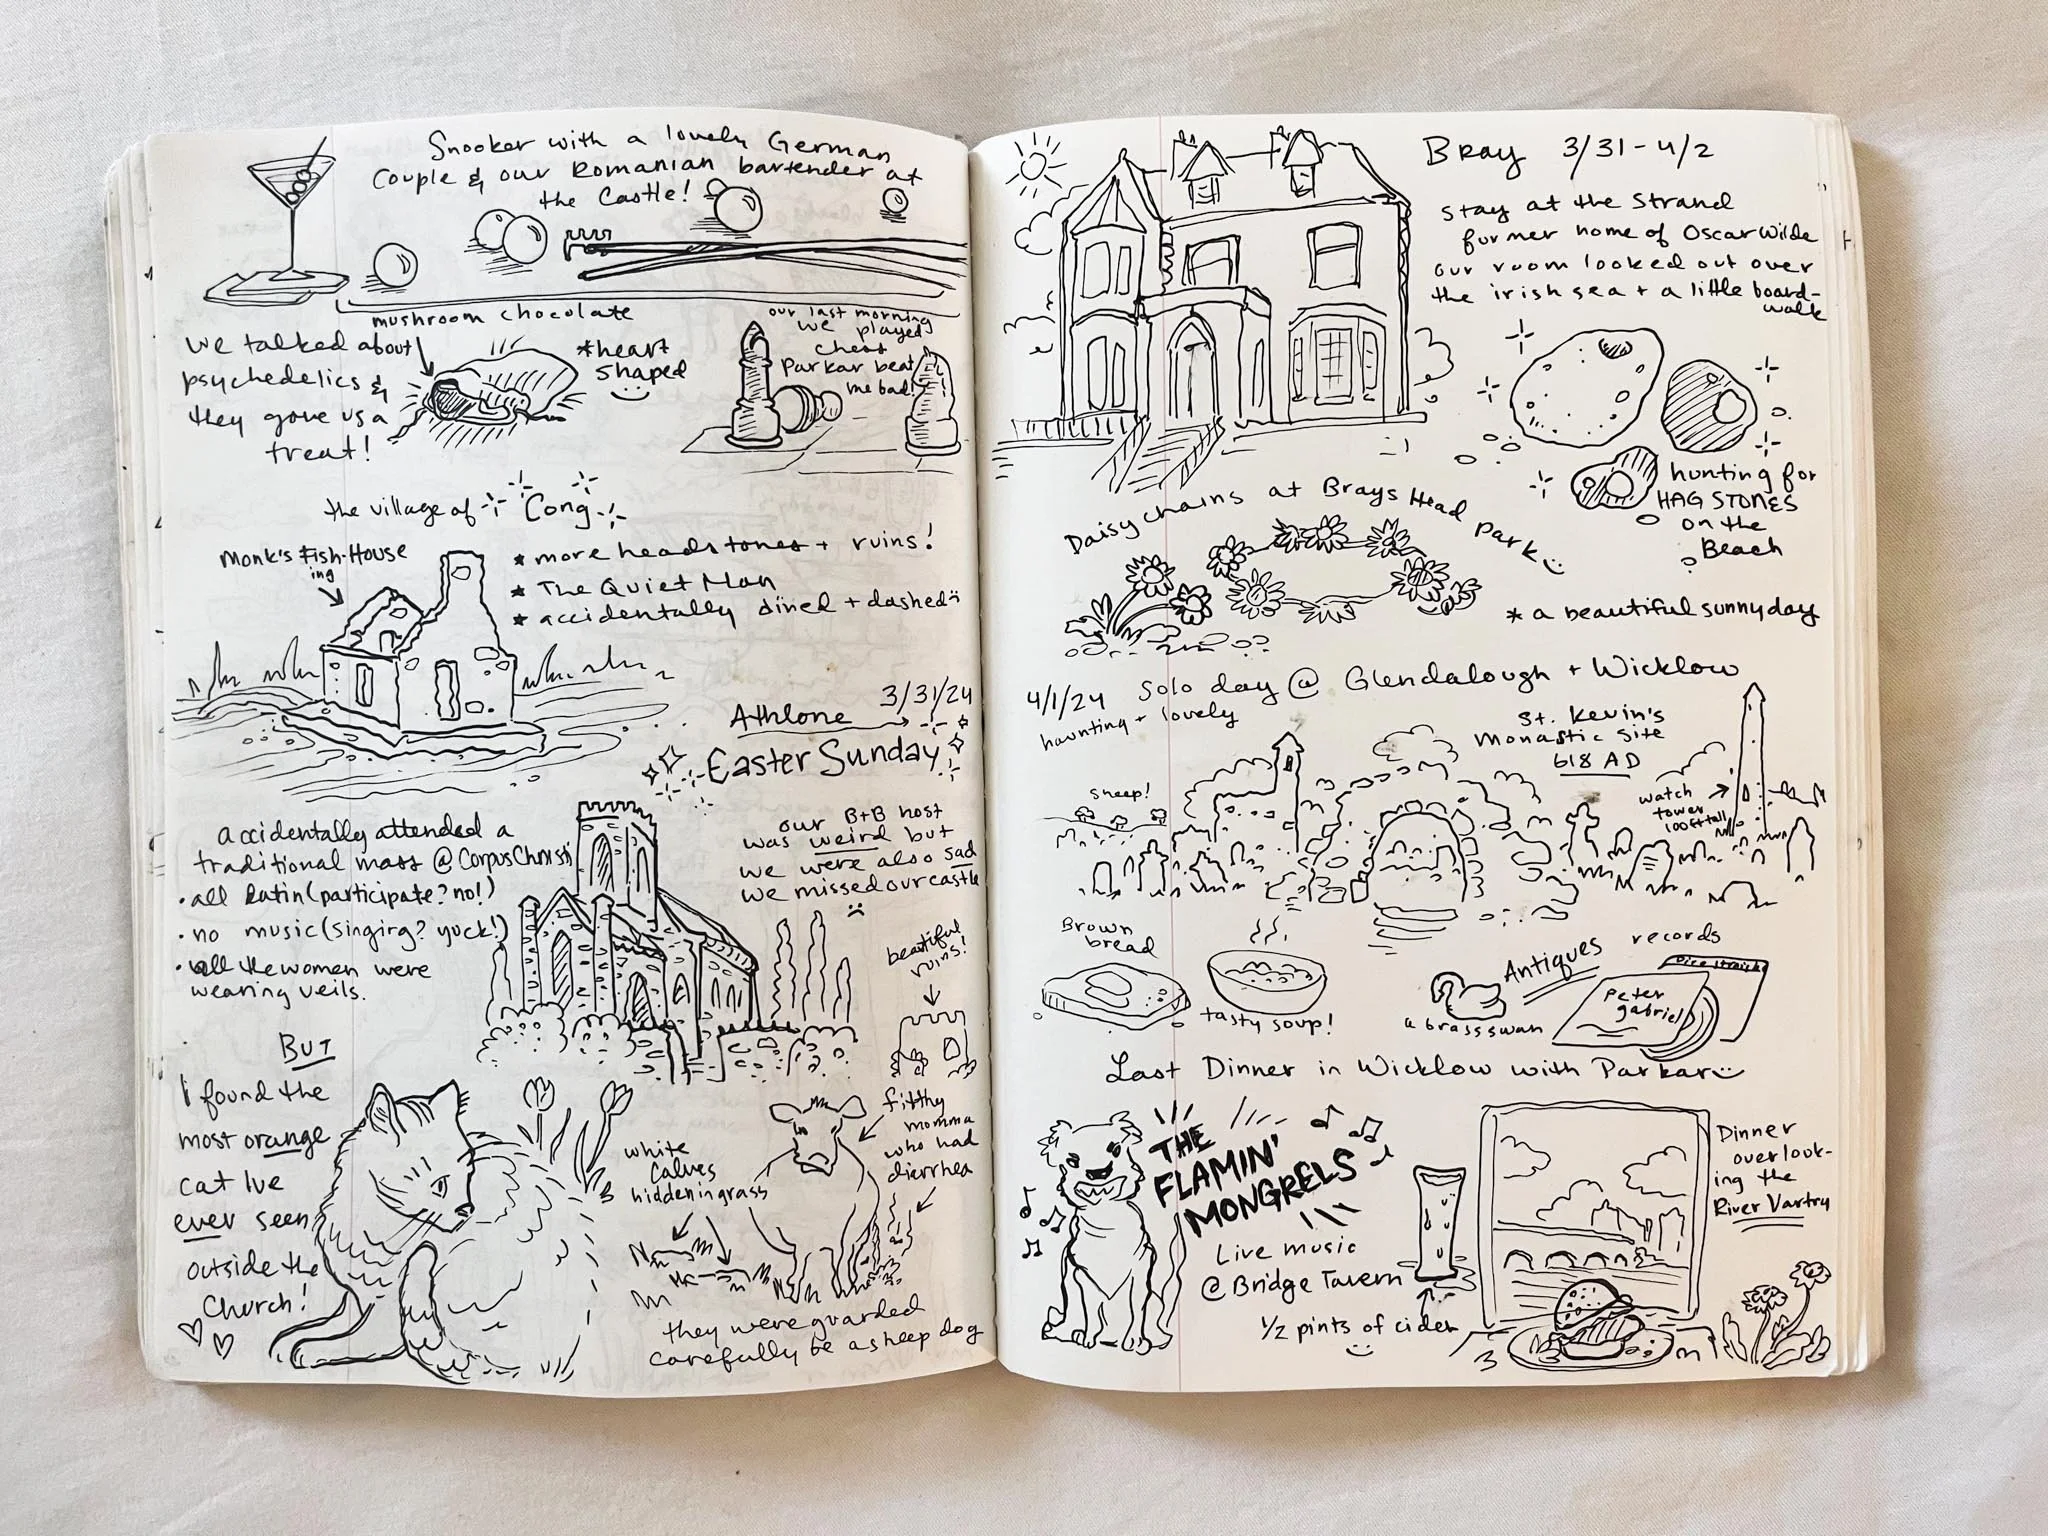 Snooker with a lovely German
Couple & our Romanian bartender at
the Castle!
mushroom chocolate
we talked about
psychedelics &
they gave us a
treat!
*heart
shaped
our last morning
we played
chess
Parkar beat
me bad!
the village of Cong
Monk's Fish-House
ing
* more headstones + ruins!
* The Quiet Man
* accidentally dined + dashed
Athlone → 3/31/24
Easter Sunday
accidentally attended a
traditional mass @ Corpus Christi
• all Latin (participate? no!)
• no music (singing? yuck!)
• all the women were
wearing veils.
our B+B host
was weird but
we were also sad
we missed our castle
beautiful
ruins!
BUT
I found the
most orange
cat Ive
ever seen
outside the
Church!
white
calves
hidden in grass
filthy
momma
who had
dierrhea
they were guarded
carefully be a sheep dog
Bray 3/31-4/2
stay at the Strand
former home of Oscar Wilde
our room looked out over
the irish sea + a little board-
walk
hunting for
HAG STONES
on the
Beach
Daisy chains at Brays Head Park
* a beautiful sunny day
4/1/24 Solo day @ Glendalough + Wicklow
haunting + lovely
St. Kevin's
Monastic Site
618 AD
sheep!
watch
tower
100ft tall
Brown
bread
tasty soup!
Antiques
records
a brass swan
Peter
gabriel
Dire Straights
Last Dinner in Wicklow with Parkar
THE
FLAMIN'
MONGRELS
Live music
@ Bridge Tavern
1/2 pints of cider
Dinner
overlook-
ing the
River Vartry